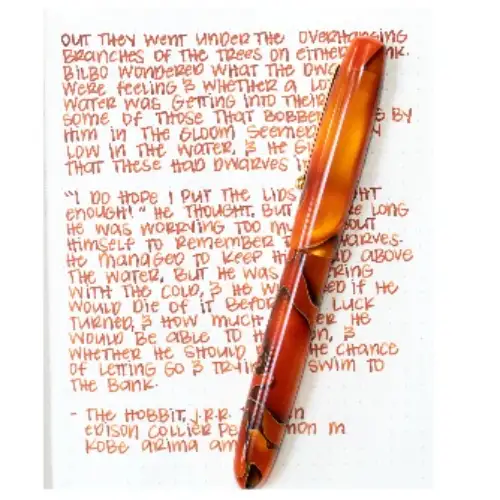 OUT THEY WENT UNDER THE OVERHANGING
BRANCHES OF THE TREES ON EITHER
BILBO WONDERED WHAT THE
WERE FEELING & WHETHER A
WATER WAS GETTING INTO THEIR
SOME OF THOSE THAT BY
HIM IN THE GLOOM SEEMED
LOW IN THE WATER, & HE
THAT THESE HAD DWARVES
"I DO HOPE I PUT THE LIDS
ENOUGH!" HE THOUGHT, BUT LONG
HE WAS WORRYING TOO
HIMSELF TO REMEMBER
HE MANAGED TO KEEP ABOVE
THE WATER, BUT HE WAS
WITH THE COLD, & HE IF HE
WOULD DIE OF IT LUCK
TURNED, & HOW MUCH HE
WOULD BE ABLE TO &
WHETHER HE SHOULD CHANCE
OF LETTING GO & SWIM TO
THE BANK.
- THE HOBBIT, J.R.R.
EDISON COLLIER M
KOBE ARIMA